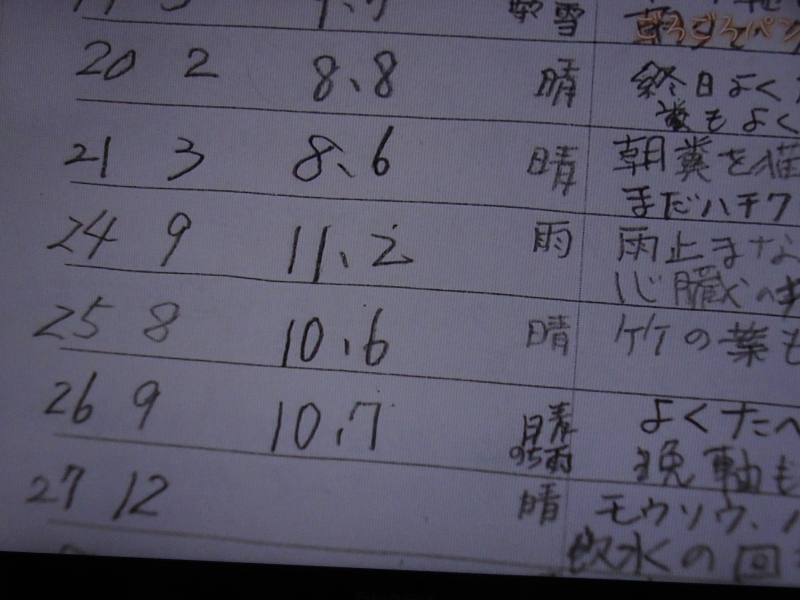 雪
ごろごろパン
20 2 8.8 晴 終日よく
糞もよく
21 3 8.6 晴 朝糞を
まだハチク
24 9 11.2 雨 雨止まな
心臓へ
25 8 10.6 晴 竹の葉も
26 9 10.7 晴 よくたべ
のち雨 軸も
27 12 晴 モウソウ、
飲水の回